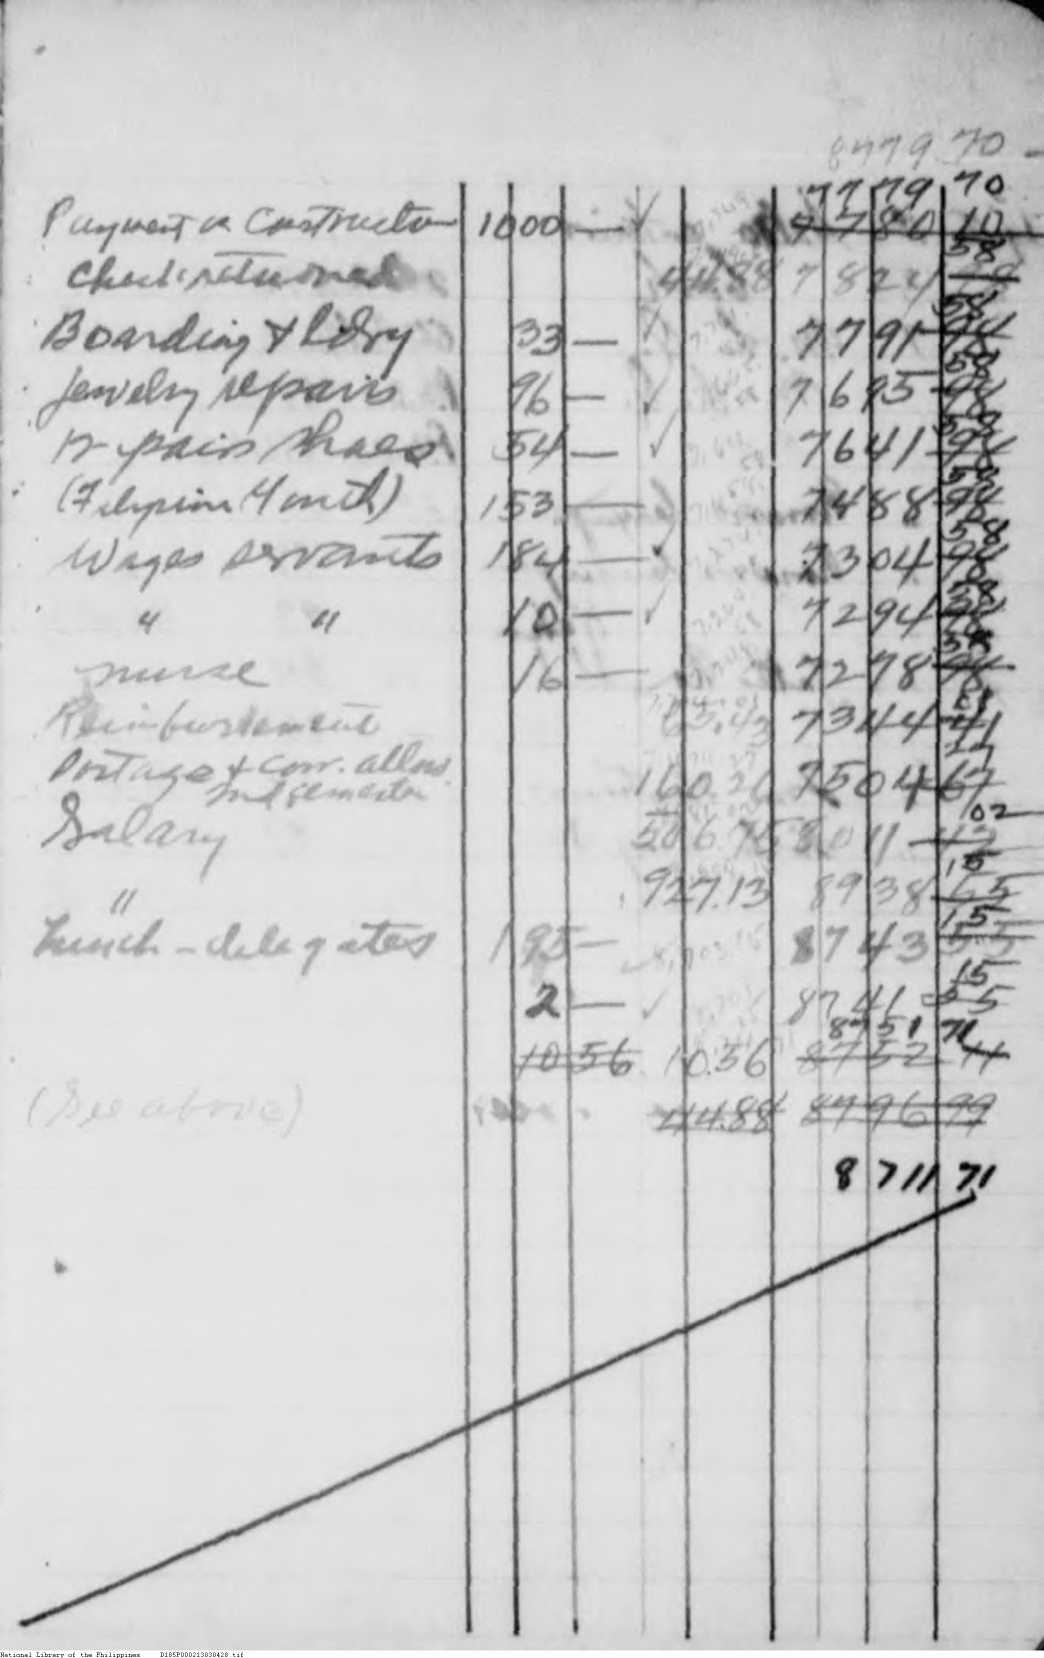 8779 70 —
7779 70
Payment on Construction 1000 — ✓ 7780 10
58
Check returned 44.88 7824
58
Boarding & Ldry 33 — ✓ 7791 94
58
Jewelry repairs 96 — ✓ 7695 98
58
pair shoes 54 — ✓ 7641 98
58
(Filipino Youth) 153 — 7488 98
58
Wages servants 184 — ✓ 7304 98
58
" " 10 — ✓ 7294 98
58
nurse 16 — 7278 98
01
Reimbursement 65.43 7344 41
27
Postage & corr. allow.
2nd semester 160.26 7504 67
02
Salary 506.75 8011 42
15
" 927.13 8938 55
15
Lunch - delegates 195 — 8743 55
15
2 — ✓ 8741 55
8751 71
10 56 10.56 8752 11
(See above) 44.88 8796 99
8711 71
National Library of the Philippines D185P000213038428.tif